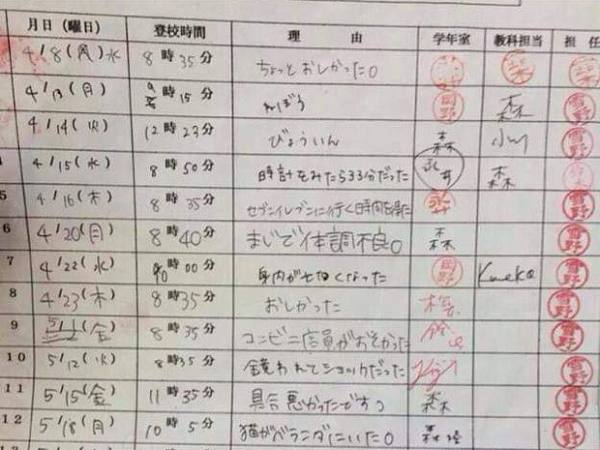 月日(曜日) 登校時間 理由 学年室 教科担当 担任
4/8(月)水 8時35分 ちょっとおしかった。
4/13(月) 9時15分 ねぼう 岡野 森 雪野
4/14(火) 12時23分 びょういん 森 小川 雪野
4/15(水) 8時50分 時計をみたら33分だった 永井 森
5 4/16(木) 8時35分 セブンイレブンに行く時間を得た 雪野
6 4/20(月) 8時40分 まじで体調不良。 森 雪野
7 4/22(水) 10時00分 身内が亡くなった 岡野 Kaneko 雪野
8 4/23(木) 8時35分 おしかった 雪野
9 (金) 8時35分 コンビニ店員がおそかった 雪野
10 5/12(火) 8時35分 鏡われてショックだった 雪野
11 5/15(金) 11時35分 具合悪かったですっ 森 雪野
12 5/18(月) 10時5分 猫がベランダにいた。 雪野